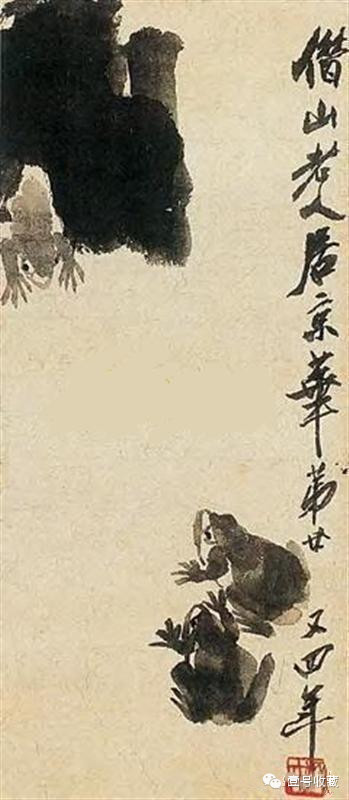 借山老人居京華第廿又四年
壹号收藏